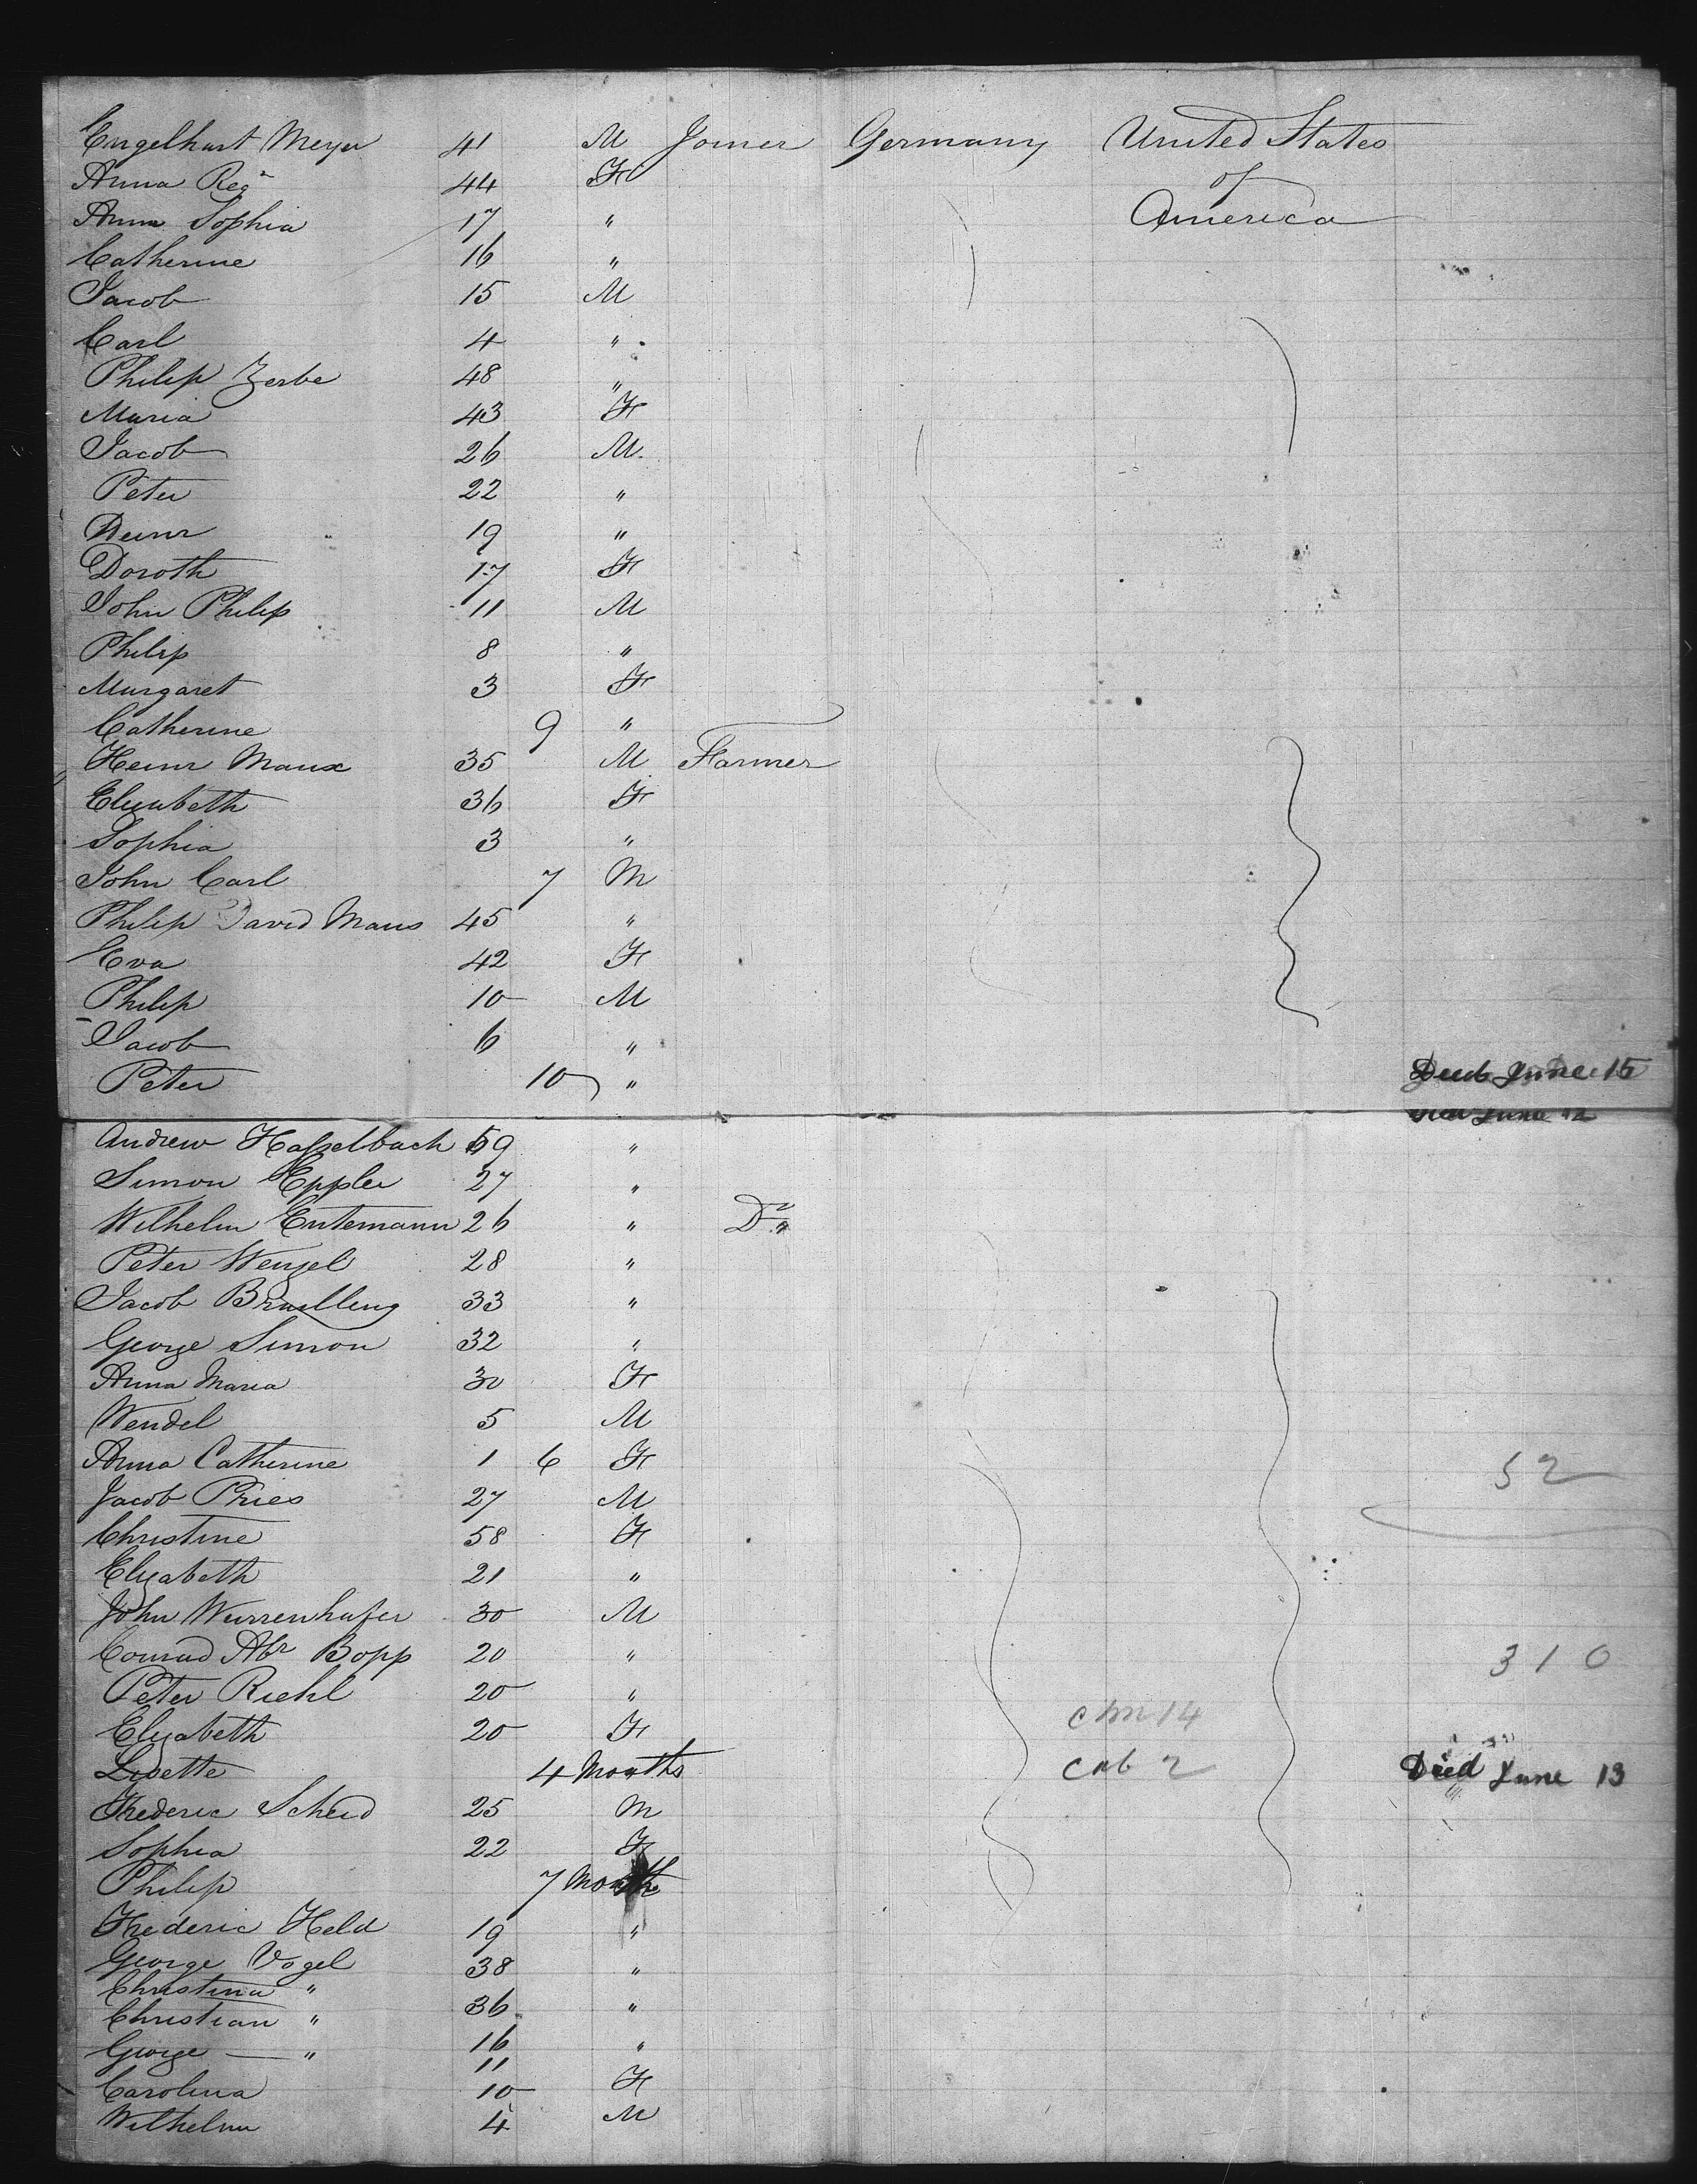 Engelhart Meyer 41 M Joiner Germany United States
Anna Reg 44 F of
Anna Sophia 17 " America
Catherine 16 "
Jacob 15 M
Carl 4 "
Philip Zerbe 48 "
Maria 43 F
Jacob 26 M
Peter 22 "
Heinr 19 "
Doroth 17 F
John Philip 11 M
Philip 8 "
Margaret 3 F
Catherine 9 "
Heinr Maux 35 M Farmer
Elizabeth 36 F
Sophia 3 "
John Carl 7 M
Philip David Maus 45 "
Eva 42 F
Philip 10 M
Jacob 6 "
Peter 10 " Died June 15
Died June 12
Andrew Hasselbach 59 "
Simon Eppler 27 "
Wilhelm Entemann 26 " Do "
Peter Wenzel 28 "
Jacob 33 "
George Simon 32 "
Anna Maria 30 F
Wendel 5 M
Anna Catherine 1 6 F 52
Jacob Pries 27 M
Christine 58 F
Elizabeth 21 "
John 30 M
Conrad Abr Bopp 20 " 310
Peter Riehl 20 "
Elizabeth 20 F chn 14
Lisette 4 Months cab 2 Died June 13
Frederic Scheid 25 M
Sophia 22 F
Philip 7 Month
Frederic Held 19 "
George Vogel 38 "
Christina " 36 "
Christian " 16 "
George — " 11
Carolina 10 F
Wilhelm 4 M